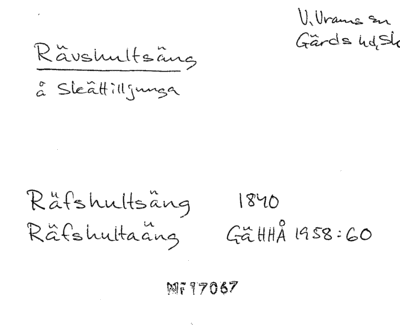 V. Vrams sn
Rävshultsäng
Gärds hd, Sk
å Skättilljunga
Räfshultsäng 1840
Räfshultaäng GäHHÅ 1958:60
Nr 17067